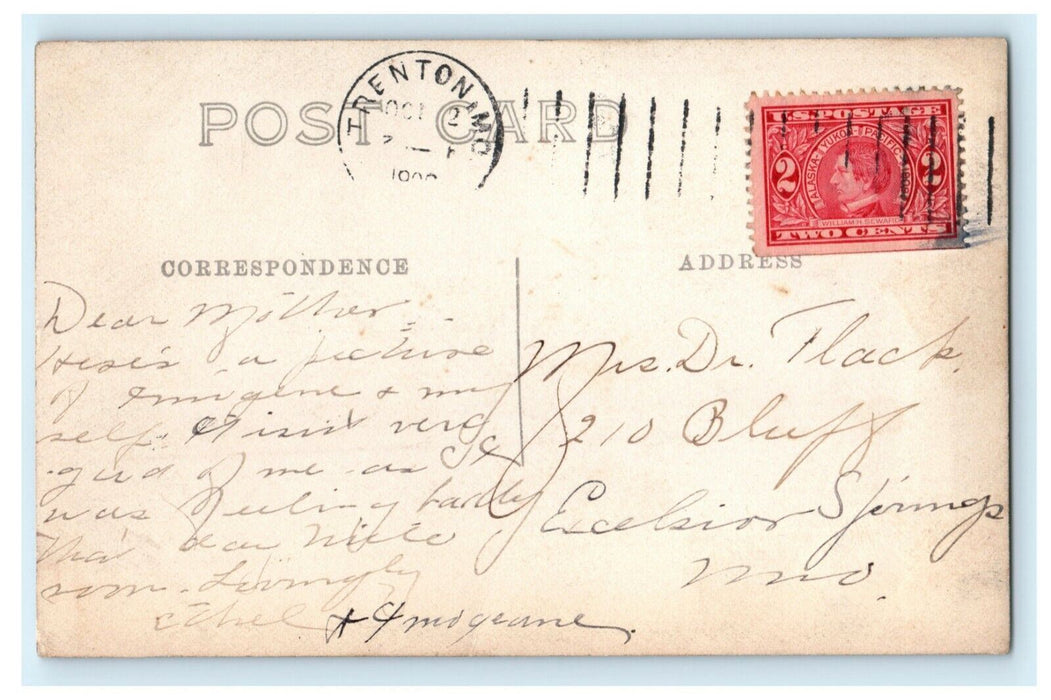 POST CARD
TRENTON, MO.
OCT 2
190
U.S. POSTAGE
ALASKA-YUKON-PACIFIC 1909
2 2
WILLIAM H. SEWARD
TWO CENTS
CORRESPONDENCE
ADDRESS
Dear Mother -
Here's a picture
of Imigene & my
self. It isn't very
good of me as I
was feeling badly
that
Lovingly
Ethel & Imogeane.
Mrs. Dr. Flack.
210 Bluff
Excelsior Springs
Mo.